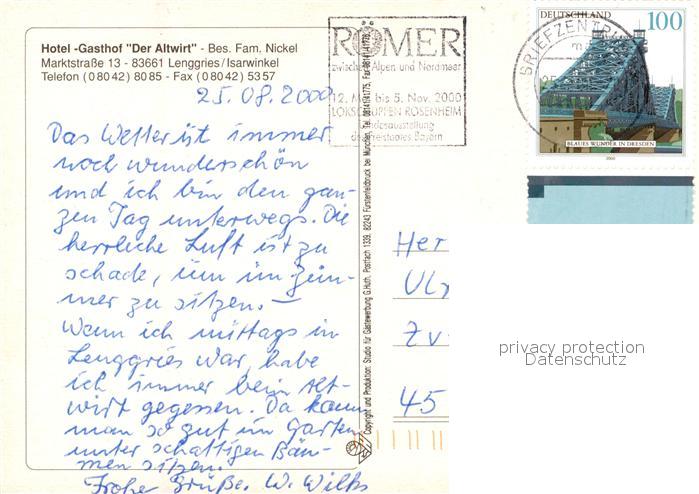 Hotel -Gasthof "Der Altwirt" - Bes. Fam. Nickel
Marktstraße 13 - 83661 Lenggries/Isarwinkel
Telefon (0 80 42) 80 85 - Fax (0 80 42) 53 57
25.08.2000
Das Wetter ist immer
noch wunderschön
und ich bin den gan-
zen Tag unterwegs. Die
herrliche Luft ist zu
schade, um im Zim-
mer zu sitzen. —
Wenn ich mittags in
Lenggries war, habe
ich immer beim Alt-
wirt gegessen. Da kann
man so gut im Garten
unter schattigen Bäu-
men sitzen.
Frohe Grüße. W. Wilks
RÖMER
zwischen Alpen und Nordmeer
12. Mai bis 5. Nov. 2000
LOKSCHUPPEN ROSENHEIM
Landesausstellung
des Freistaates Bayern
DEUTSCHLAND 100
BRIEFZENTR
BLAUES WUNDER IN DRESDEN
2000
Her
Ul
Zv
45
privacy protection
Datenschutz
Copyright und Produktion: Studio für Gästewerbung G. Huth, Postfach 1339, 82243 Fürstenfeldbruck bei München, Tel.